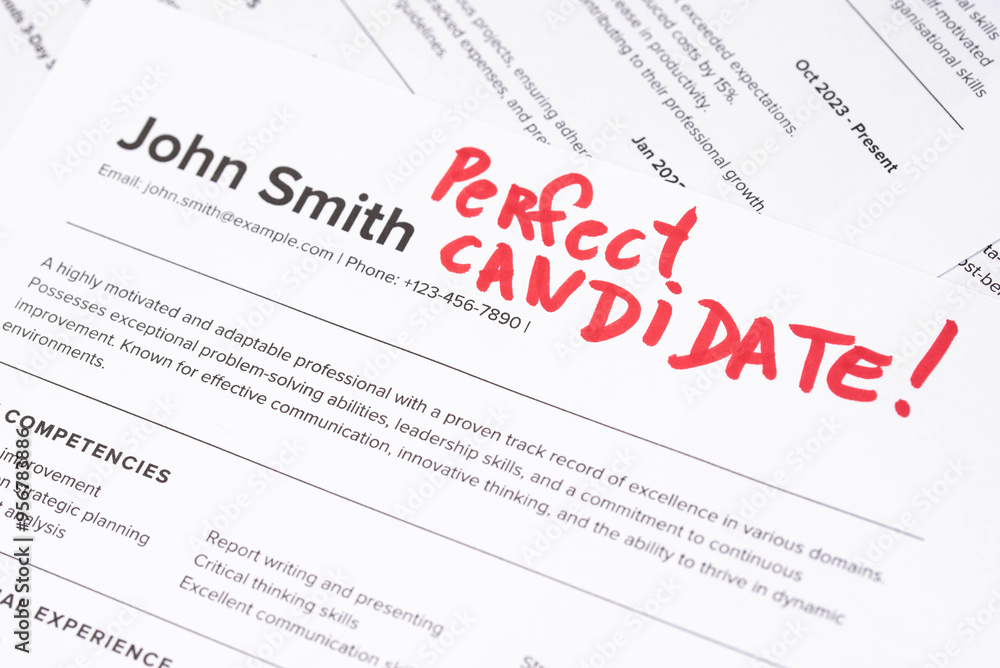 John Smith
Email: john.smith@example.com | Phone: +123-456-7890 |
Perfect
CANDiDATE!
A highly motivated and adaptable professional with a proven track record of excellence in various domains.
Possesses exceptional problem-solving abilities, leadership skills, and a commitment to continuous
improvement. Known for effective communication, innovative thinking, and the ability to thrive in dynamic
environments.
COMPETENCIES
improvement
strategic planning
analysis
Report writing and presenting
Critical thinking skills
Excellent communication
EXPERIENCE
guidelines.
projects, ensuring
expenses, and
Jan
increase in productivity.
to their professional growth.
exceeded expectations.
costs by 15%.
Oct 2023 - Present
skills
self-motivated
organisational skills
3 Day
Adobe Stock | #956783886
Adobe Stock